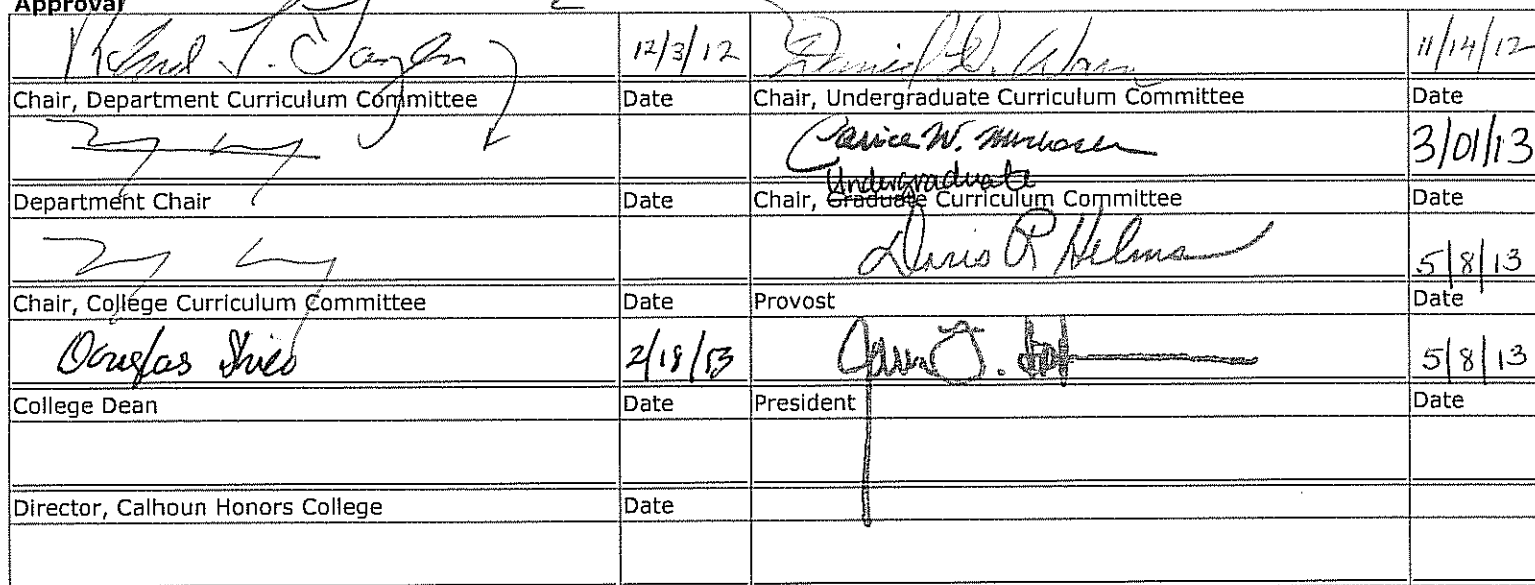 Approval
12/3/12 11/14/12
Chair, Department Curriculum Committee Date Chair, Undergraduate Curriculum Committee Date
Janice W. 3/01/13
Undergraduate
Department Chair Date Chair, Graduate Curriculum Committee Date
Doris R Helms 5/8/13
Chair, College Curriculum Committee Date Provost Date
Douglas 5/8/13
College Dean Date President Date
Director, Calhoun Honors College Date